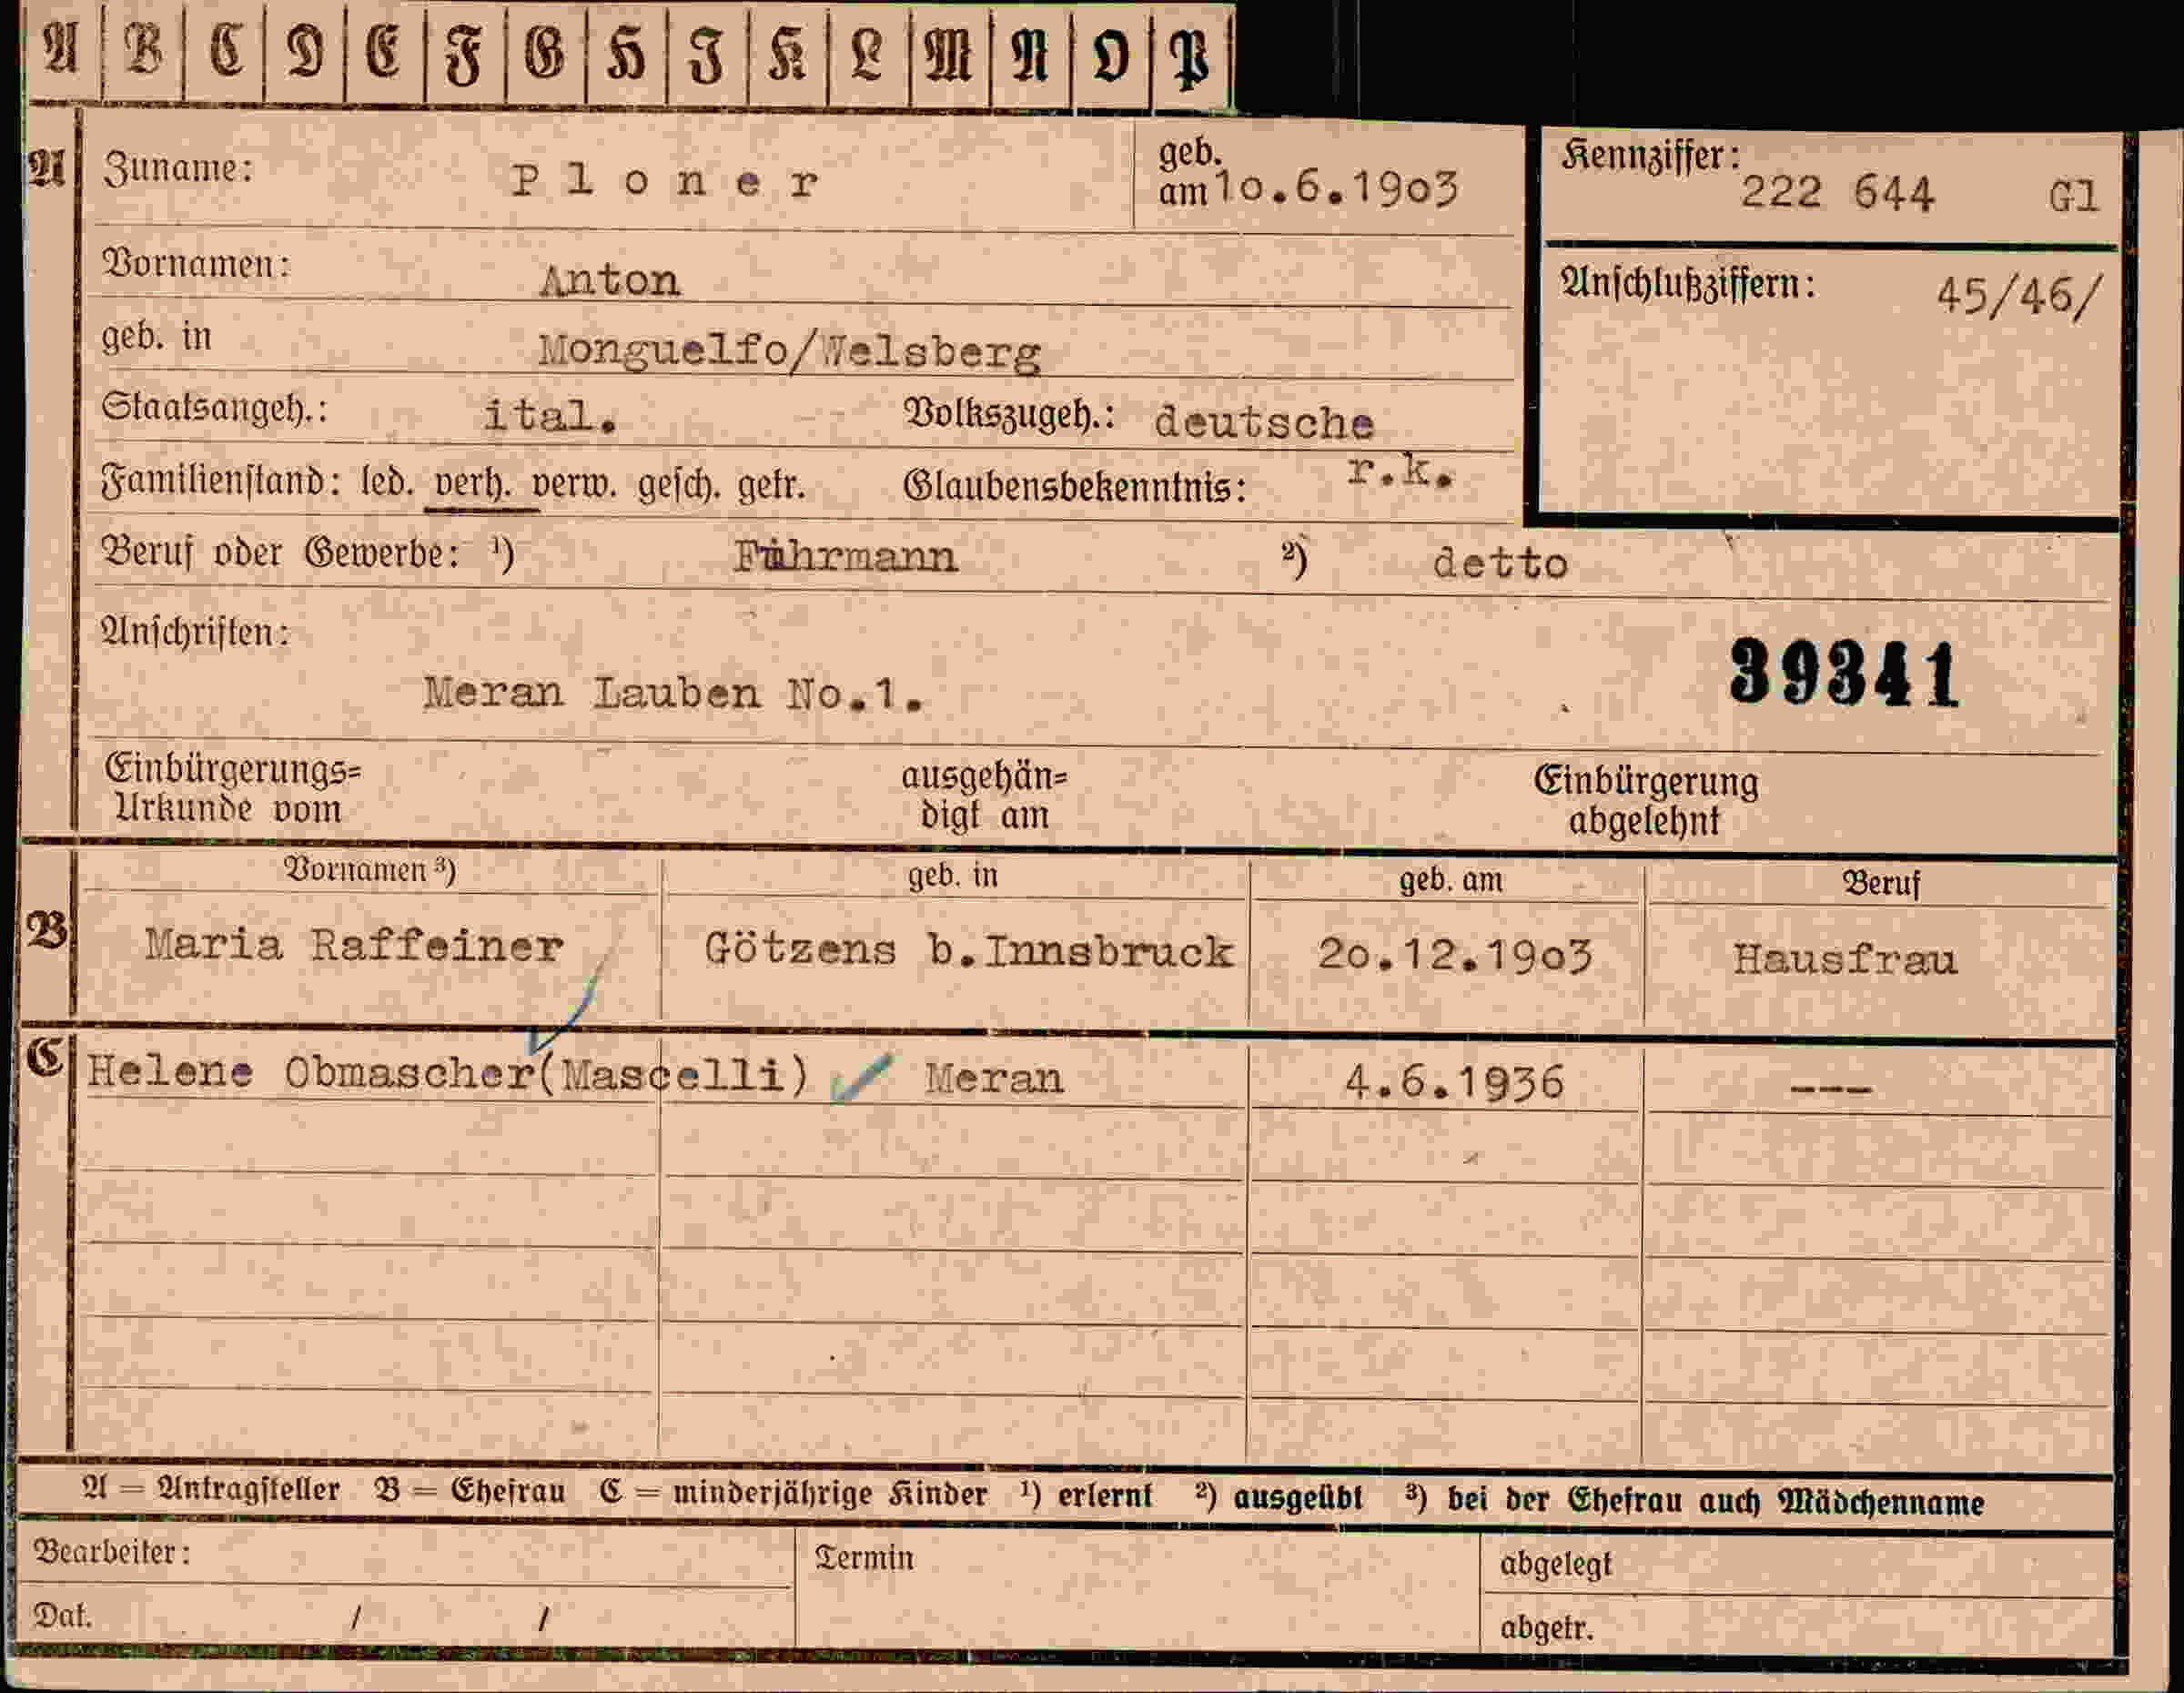 A B C D E F G H I K L M N O P
A Zuname: Ploner geb. am 10.6.1903 Kennziffer: 222 644 Gl
Vornamen: Anton Anschlußziffern: 45/46/
geb. in Monguelfo/Welsberg
Staatsangeh.: ital. Volkszugeh.: deutsche
Familienstand: led. verh. verw. gesch. getr. Glaubensbekenntnis: r.k.
Beruf oder Gewerbe: ¹) Fuhrmann ²) detto
Anschriften:
39341
Meran Lauben No.1.
Einbürgerungs= ausgehän= Einbürgerung
Urkunde vom digt am abgelehnt
Vornamen ³) geb. in geb. am Beruf
B Maria Raffeiner Götzens b.Innsbruck 20.12.1903 Hausfrau
C Helene Obmascher(Mascelli) Meran 4.6.1936 ---
A = Antragsteller B = Ehefrau C = minderjährige Kinder ¹) erlernt ²) ausgeübt ³) bei der Ehefrau auch Mädchenname
Bearbeiter: Termin abgelegt
Dat. / / abgetr.